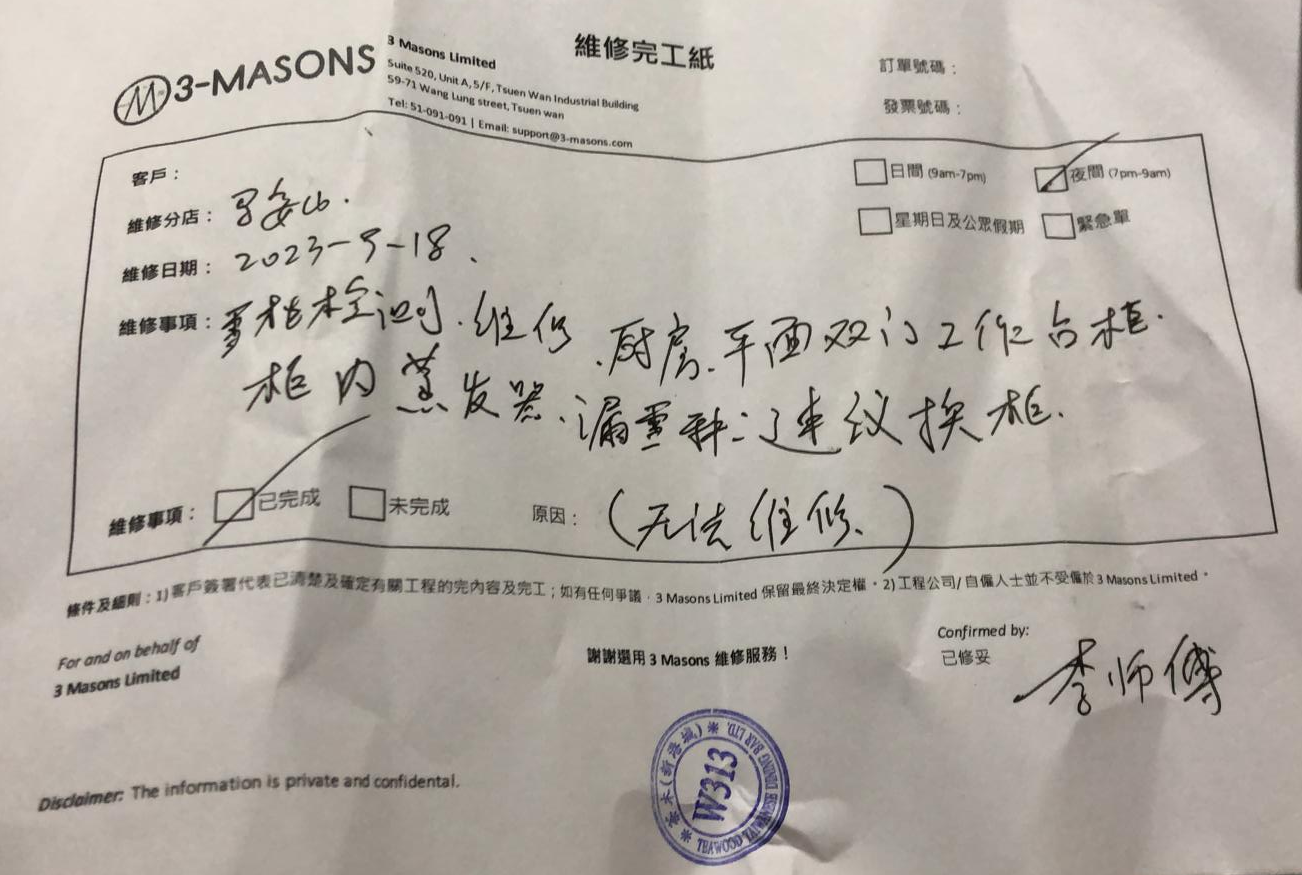 3-MASONS
3 Masons Limited
Suite 520, Unit A, 5/F, Tsuen Wan Industrial Building
59-71 Wang Lung street, Tsuen wan
Tel: 51-091-091 | Email: support@3-masons.com
維修完工紙
訂單號碼：
發票號碼：
客戶：
日間 (9am-7pm)
夜間 (7pm-9am)
維修分店：马鞍山.
星期日及公眾假期
緊急單
維修日期：2023-9-18.
維修事項：雪柜检测.维修.厨房.平面双门工作台柜.
柜内蒸发器.漏雪种:建议换柜.
維修事項：
已完成
未完成
原因：(无法维修.)
條件及細則：1)客戶簽署代表已清楚及確定有關工程的完內容及完工；如有任何爭議，3 Masons Limited 保留最終決定權。2)工程公司/ 自僱人士並不受僱於3 Masons Limited。
For and on behalf of
3 Masons Limited
謝謝選用 3 Masons 維修服務！
Confirmed by:
已修妥
李师傅
W313
TEAWOOD TAIWANESE DINING BAR LTD.
茶木(新港城)
Disclaimer: The information is private and confidental.